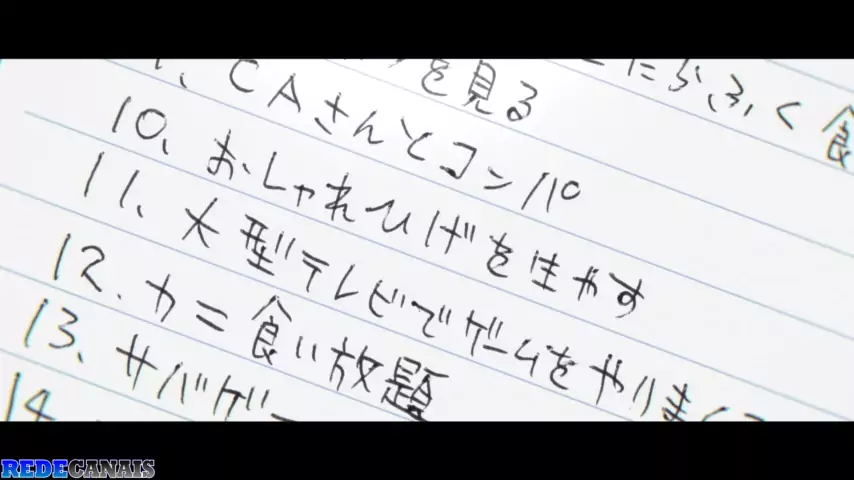 らふく食
を見る
、CAさんとコンパ
10、おしゃれひげを生やす
11、大型テレビでゲームをやりまく
12.カニ食い放題
13、サバゲー
14
REDECANAIS